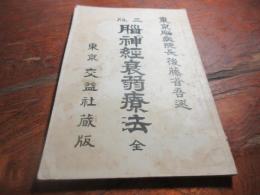 東京脳病院長後藤省吾述
三版
脳神経衰弱療法 全
東京 交益社蔵版